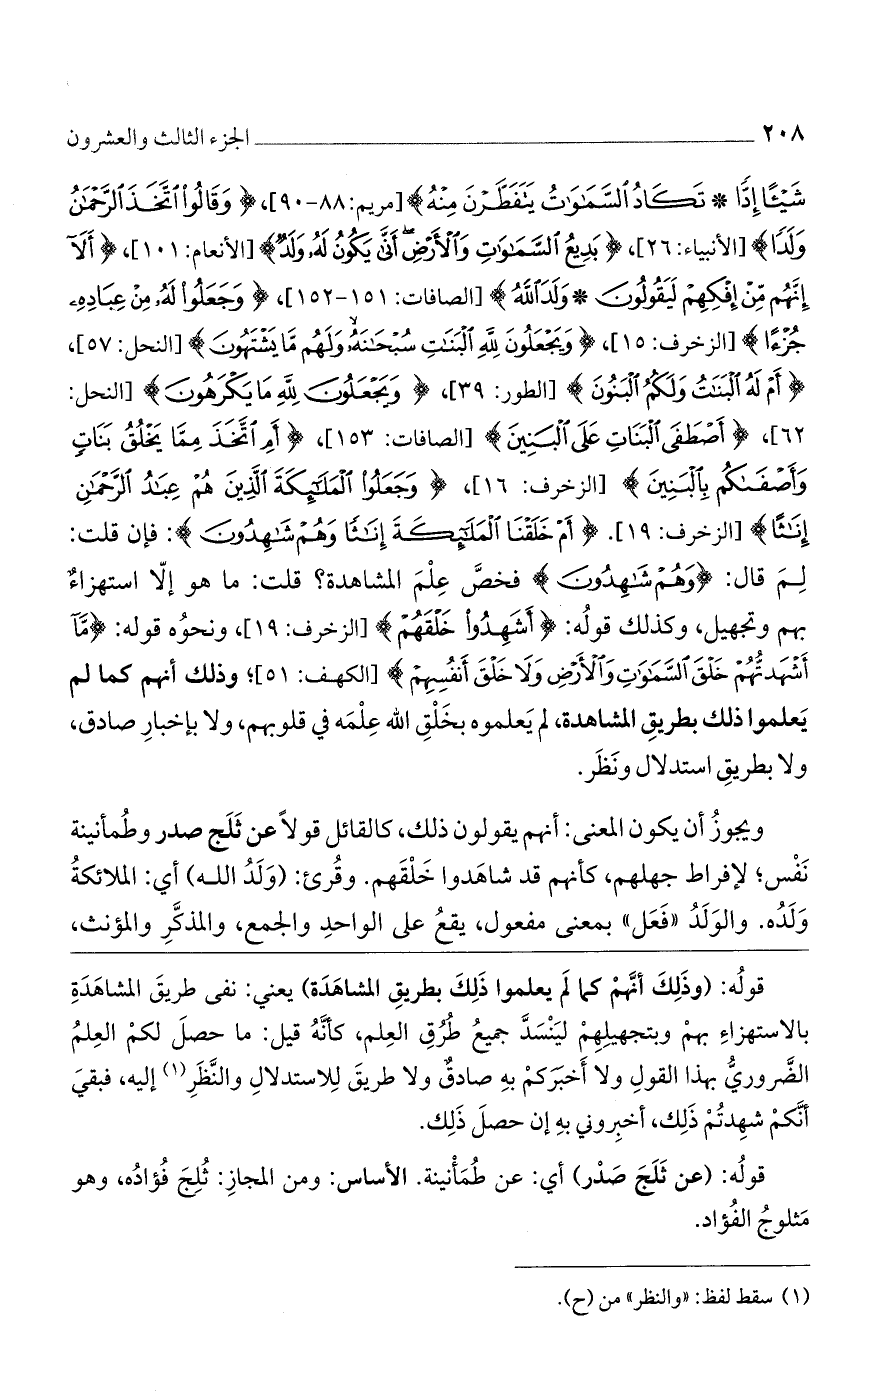 ٢٠٨ الجزء الثالث والعشرون
شَيْئًا إِدًّا * تَكَادُ السَّمَٰوَٰتُ يَتَفَطَّرْنَ مِنْهُ﴾ [مريم: ٨٨-٩٠]، ﴿وَقَالُوا اتَّخَذَ الرَّحْمَٰنُ
وَلَدًا﴾ [الأنبياء: ٢٦]، ﴿بَدِيعُ السَّمَٰوَٰتِ وَالْأَرْضِ أَنَّىٰ يَكُونُ لَهُۥ وَلَدٌ﴾ [الأنعام: ١٠١]، ﴿أَلَآ
إِنَّهُم مِّنْ إِفْكِهِمْ لَيَقُولُونَ * وَلَدَ اللَّهُ﴾ [الصافات: ١٥١-١٥٢]، ﴿وَجَعَلُوا لَهُۥ مِنْ عِبَادِهِۦ
جُزْءًا﴾ [الزخرف: ١٥]، ﴿وَيَجْعَلُونَ لِلَّهِ الْبَنَٰتِ سُبْحَٰنَهُۥ وَلَهُم مَّا يَشْتَهُونَ﴾ [النحل: ٥٧]،
﴿أَمْ لَهُ الْبَنَٰتُ وَلَكُمُ الْبَنُونَ﴾ [الطور: ٣٩]، ﴿وَيَجْعَلُونَ لِلَّهِ مَا يَكْرَهُونَ﴾ [النحل:
٦٢]، ﴿أَصْطَفَى الْبَنَاتِ عَلَى الْبَنِينَ﴾ [الصافات: ١٥٣]، ﴿أَمِ اتَّخَذَ مِمَّا يَخْلُقُ بَنَاتٍ
وَأَصْفَىٰكُم بِالْبَنِينَ﴾ [الزخرف: ١٦]، ﴿وَجَعَلُوا الْمَلَٰٓئِكَةَ الَّذِينَ هُمْ عِبَٰدُ الرَّحْمَٰنِ
إِنَٰثًا﴾ [الزخرف: ١٩]. ﴿أَمْ خَلَقْنَا الْمَلَٰٓئِكَةَ إِنَٰثًا وَهُمْ شَٰهِدُونَ﴾: فإن قلت:
لِمَ قال: ﴿وَهُمْ شَٰهِدُونَ﴾ فخصَّ عِلْمَ المشاهدة؟ قلت: ما هو إلّا استهزاءٌ
بهم وتجهيل، وكذلك قولُه: ﴿أَشَهِدُوا خَلْقَهُمْ﴾ [الزخرف: ١٩]، ونحوُه قوله: ﴿مَّآ
أَشْهَدتُّهُمْ خَلْقَ السَّمَٰوَٰتِ وَالْأَرْضِ وَلَا خَلْقَ أَنفُسِهِمْ﴾ [الكهف: ٥١]؛ وذلك أنهم كما لم
يَعلموا ذلك بطريقِ المشاهدة، لم يَعلموه بخَلْقِ الله عِلْمَه في قلوبهم، ولا بإخبارِ صادق،
ولا بطريقِ استدلال ونَظَر.
ويجوزُ أن يكون المعنى: أنهم يقولون ذلك، كالقائل قولاً عن ثَلَج صدر وطُمأنينة
نَفْس؛ لإفراط جهلهم، كأنهم قد شاهَدوا خَلْقَهم. وقُرئ: (وَلَدُ اللـه) أي: الملائكةُ
وَلَدُه. والوَلَدُ «فَعَل» بمعنى مفعول، يقعُ على الواحدِ والجمع، والمذكَّرِ والمؤنث،
قولُه: (وذَلِكَ أنَّهُمْ كما لَم يعلموا ذَلِكَ بطريقِ المشاهَدَة) يعني: نفى طريقَ المشاهَدَةِ
بالاستهزاءِ بهِمْ وبتجهيلِهِمْ ليَنْسَدَّ جميعُ طُرُقِ العِلم، كأنَّهُ قيل: ما حصلَ لكمْ العِلمُ
الضَّروريُّ بهذا القولِ ولا أخبَرَكمْ بهِ صادقٌ ولا طريقَ لِلاستدلالِ والنَّظَرِ(١) إليه، فبقيَ
أنَّكمْ شهِدتُمْ ذَلِك، أخبِروني بهِ إن حصلَ ذَلِك.
قولُه: (عن ثَلَجَ صَدْر) أي: عن طُمَأْنينة. الأساس: ومن المجازِ: ثُلِجَ فُؤادُه، وهو
مَثلوجُ الفُؤاد.
(١) سقط لفظ: «والنظر» من (ح).